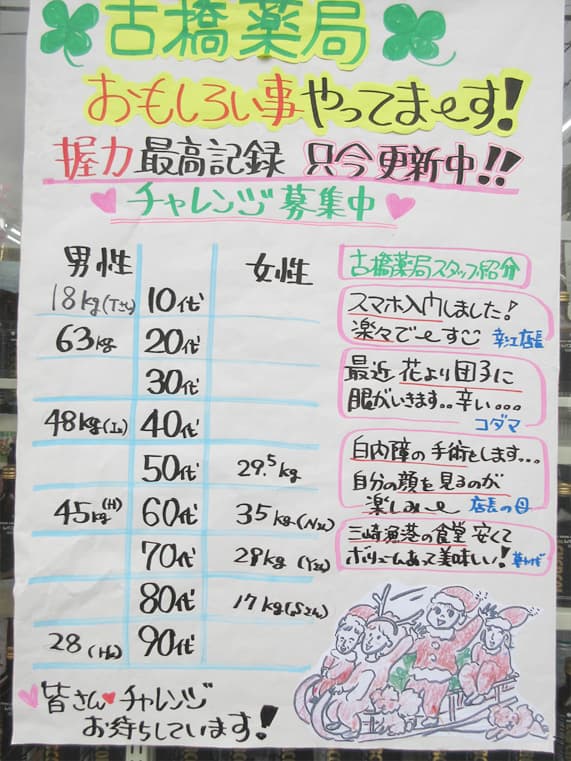 古橋薬局
おもしろい事やってま〜す!
握力最高記録 只今更新中!!
チャレンジ募集中
男性 女性
18kg(Tさん) 10代
63kg 20代
30代
48kg 40代
50代 29.5kg
45kg(H) 60代 35kg
70代 29kg
80代 17kg(Sさん)
28 90代
皆さんチャレンジ
お待ちしています!
古橋薬局スタッフ紹介
スマホ入力しました!
楽々で〜す 幸江店長
最近 花より団子に
眼がいきます..辛い...
コダマ
白内障の手術をします...
自分の顔を見るのが
楽しみ〜 店長の母
三崎漁港の食堂 安くて
ボリュームあって美味しい!